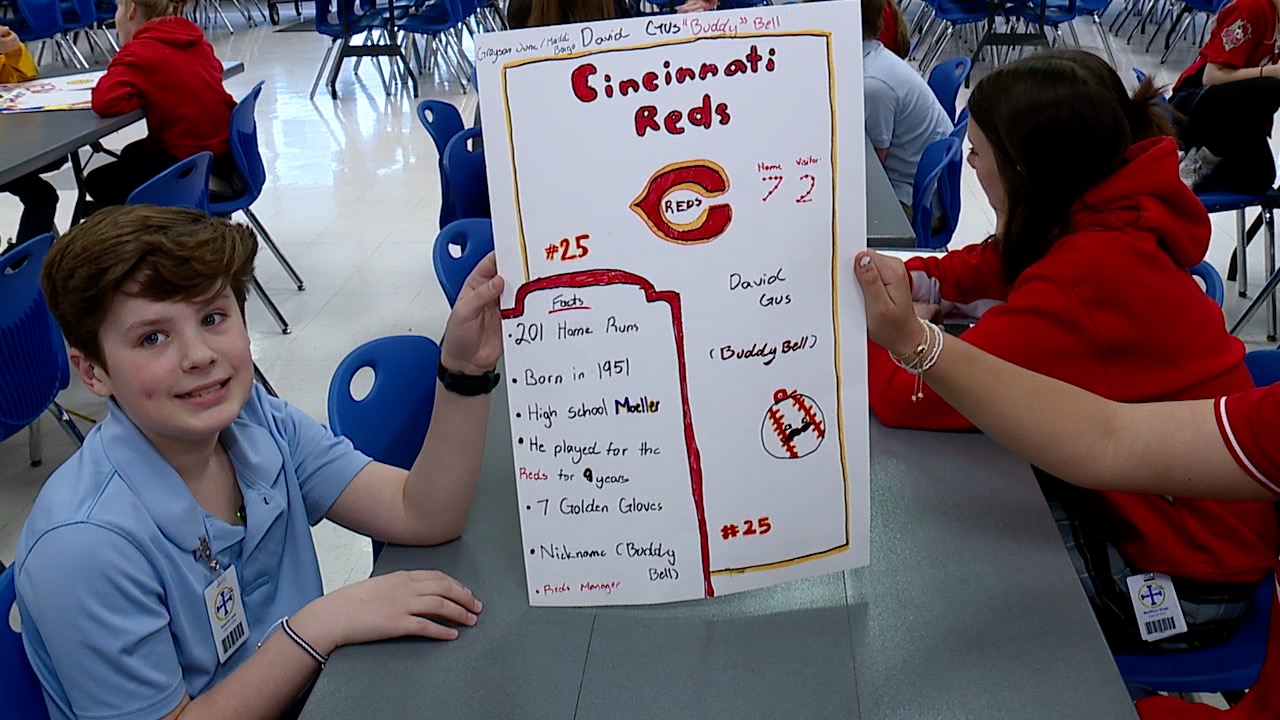 Grayson June / Maddi David Gus "Buddy" Bell
Cincinnati
Reds
Home Visitor
7 2
REDS
#25
Facts
• 201 Home Runs
• Born in 1951
• High school Moeller
• He played for the
Reds for 4 years
• 7 Golden Gloves
• Nickname (Buddy
Bell)
• Reds Manager
David
Gus
(Buddy Bell)
#25